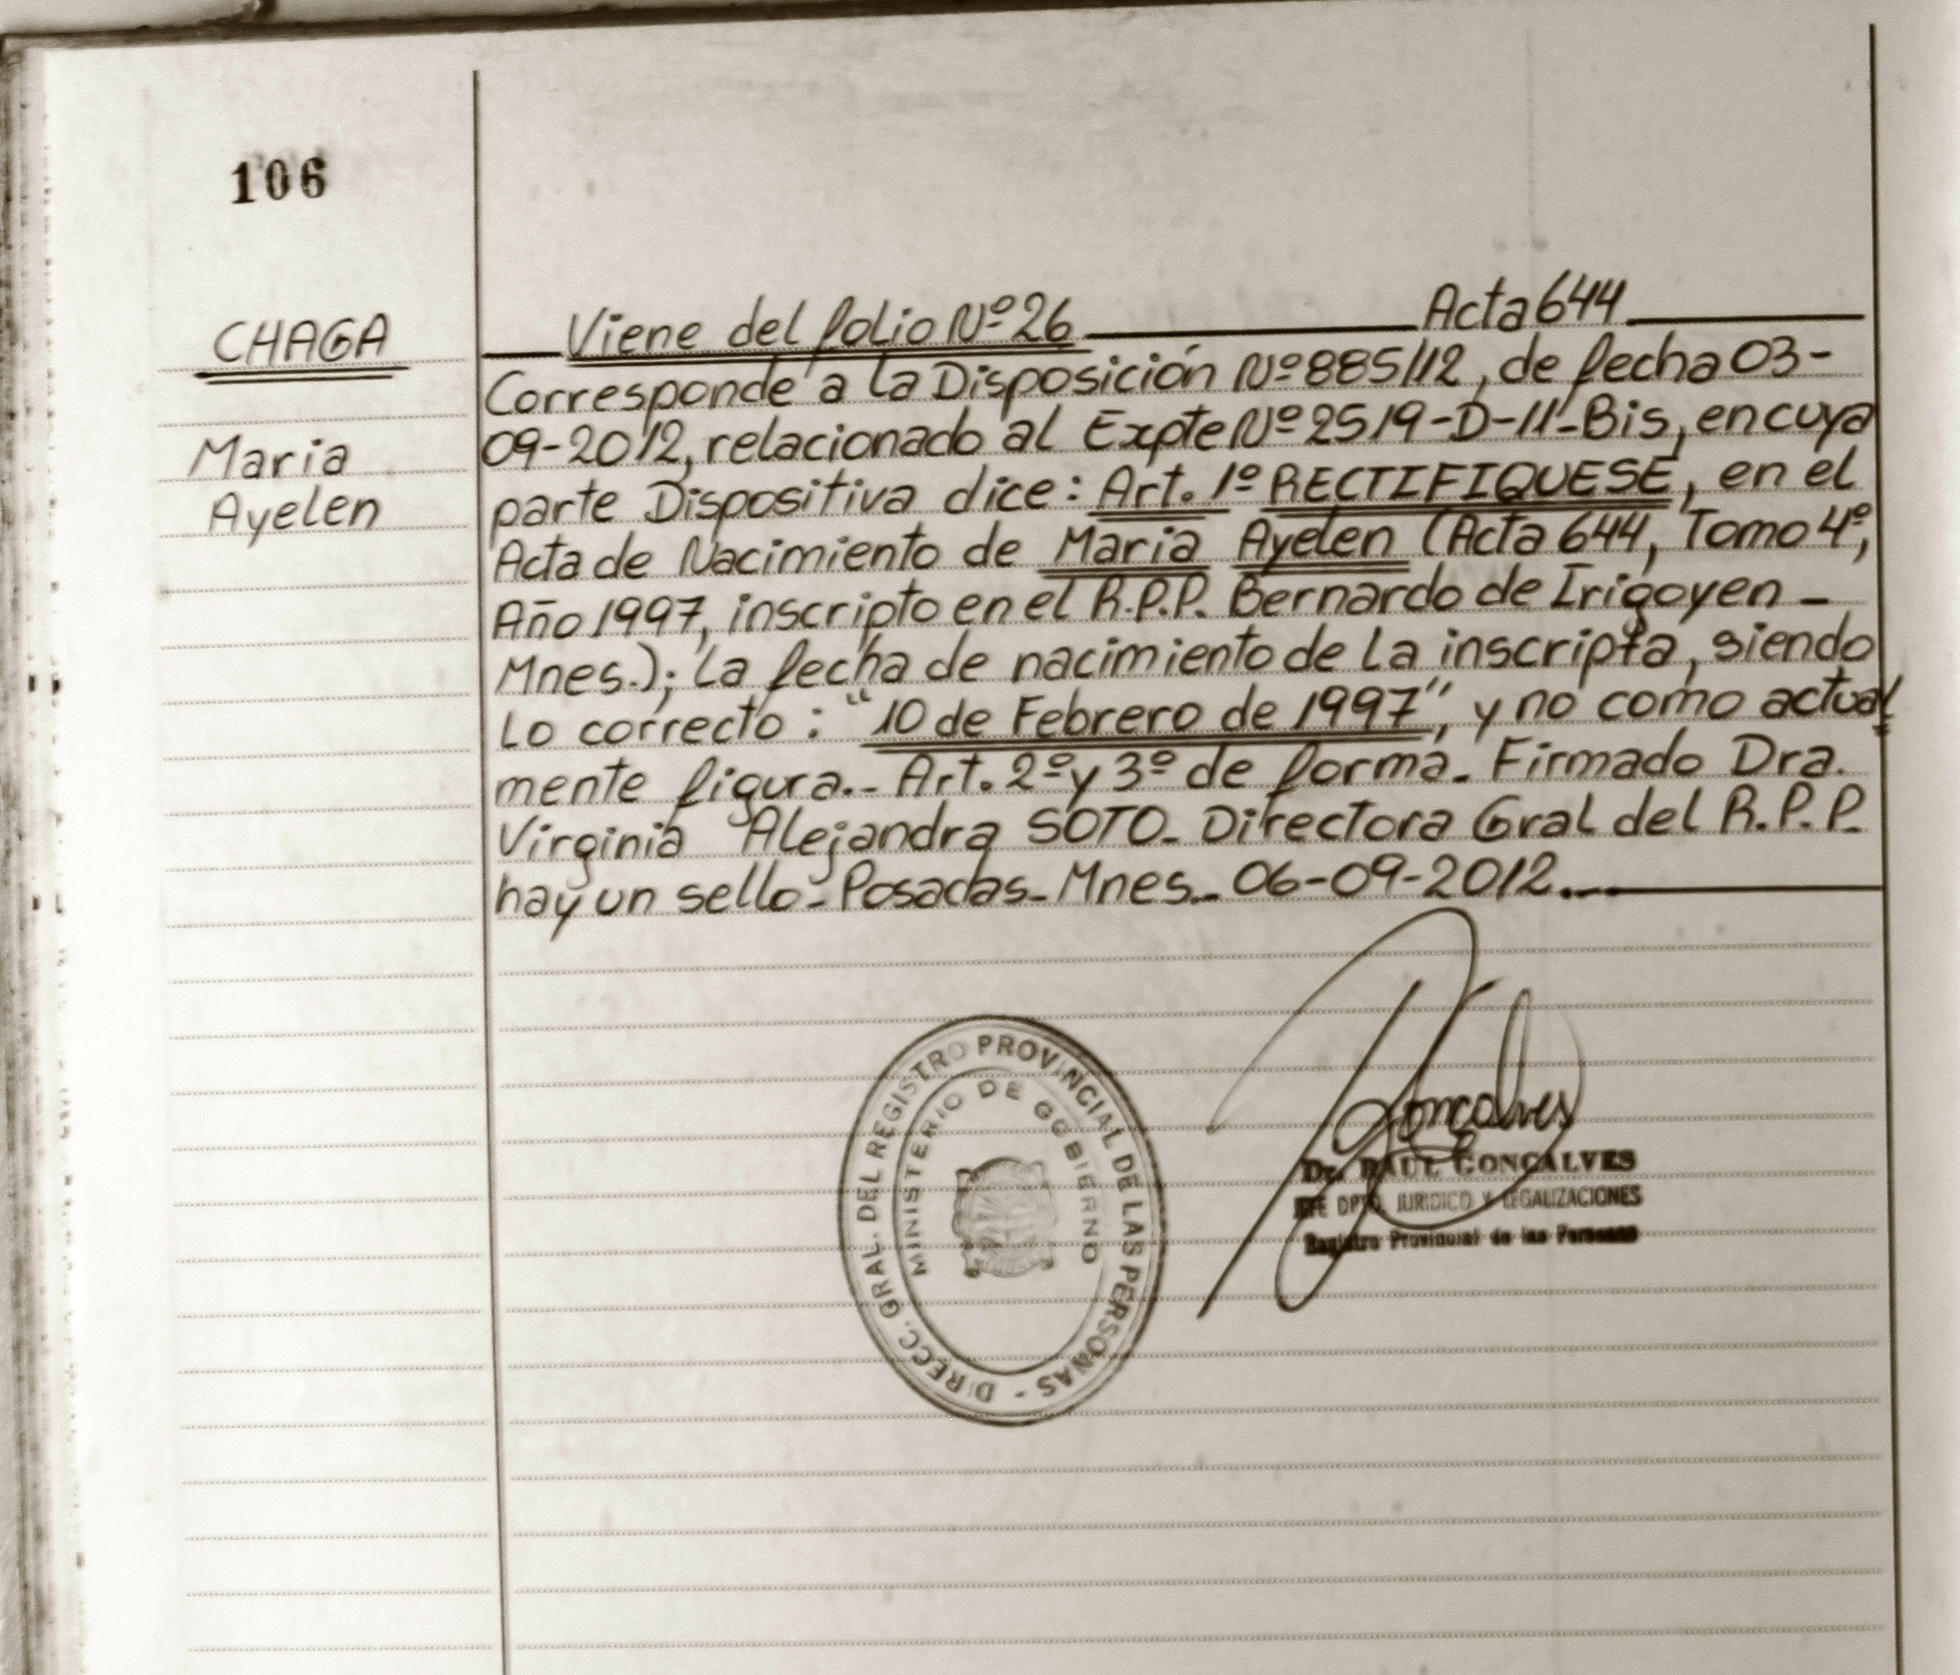 106
CHAGA
Maria
Ayelen
Viene del folio Nº 26 Acta 644
Corresponde a la Disposición Nº 885/12, de fecha 03-
09-2012, relacionado al Expte Nº 2519-D-11-Bis, en cuya
parte Dispositiva dice: Art. 1º RECTIFIQUESE, en el
Acta de Nacimiento de Maria Ayelen (Acta 644, Tomo 4º,
Año 1997, inscripto en el R.P.P. Bernardo de Irigoyen -
Mnes.); La fecha de nacimiento de La inscripta, siendo
Lo correcto: "10 de Febrero de 1997", y no como actual
mente figura.- Art. 2º y 3º de forma. Firmado Dra.
Virginia Alejandra SOTO- Directora Gral del R.P.P.
hay un sello- Posadas- Mnes- 06-09-2012.-
DIRECC. GRAL. DEL REGISTRO PROVINCIAL DE LAS PERSONAS -
MINISTERIO DE GOBIERNO
Gonçalves
Dr. RAUL GONÇALVES
JEFE DPTO. JURIDICO Y LEGALIZACIONES
Registro Provincial de las Personas